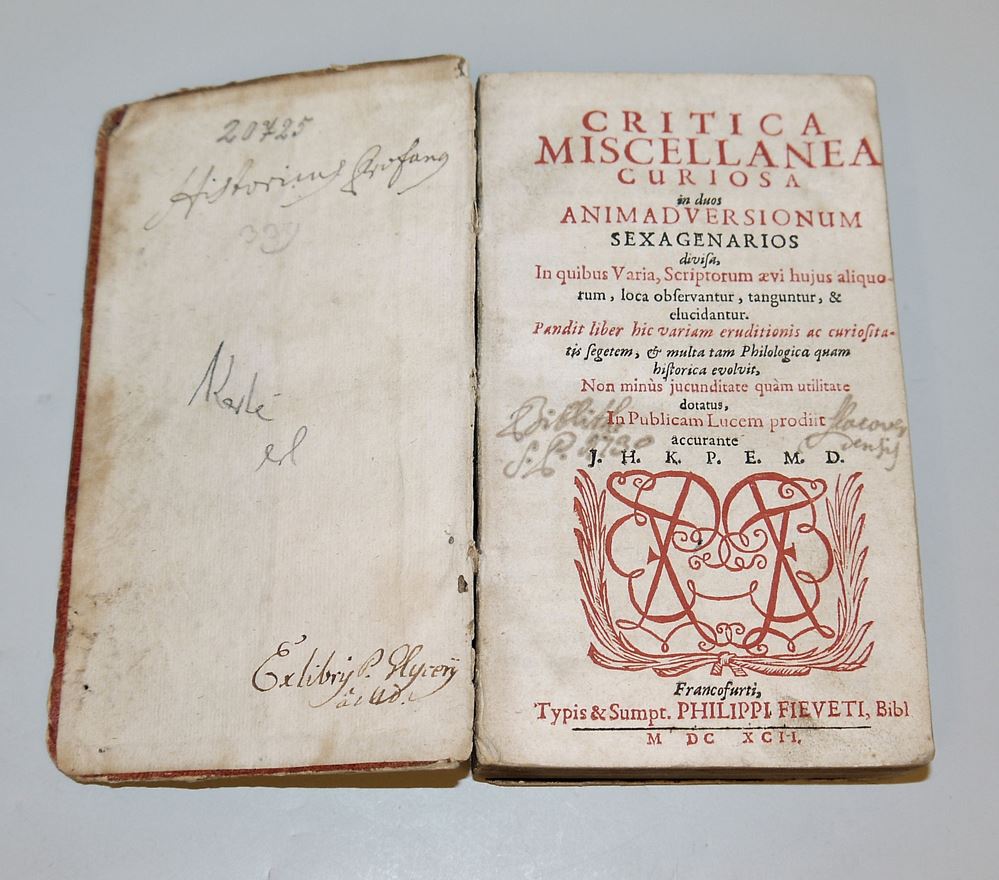 20725
Historicus Profanus
339
Ex libris P.
CRITICA
MISCELLANEA
CURIOSA
in duos
ANIMADVERSIONUM
SEXAGENARIOS
divisa,
In quibus Varia, Scriptorum ævi hujus aliquo-
rum, loca observantur, tanguntur, &
elucidantur.
Pandit liber hic variam eruditionis ac curiosita-
tis segetem, & multa tam Philologica quam
historica evolvit,
Non minùs jucunditate quàm utilitate
dotatus,
In Publicam Lucem prodiit
accurante
J. H. K. P. E. M. D.
Francofurti,
Typis & Sumpt. PHILIPPI FIEVETI, Bibl
M DC XCII.